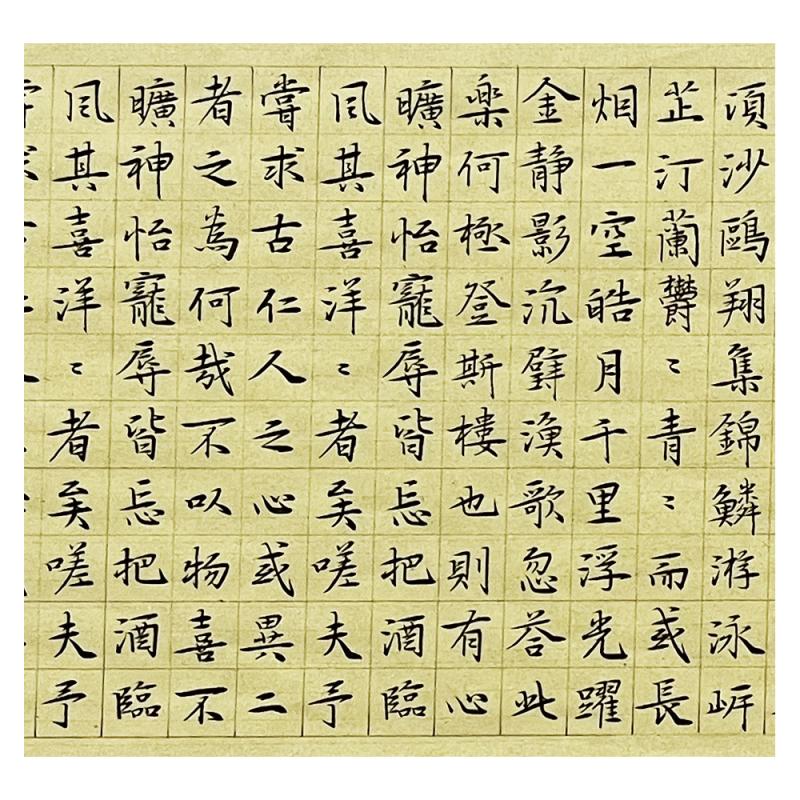 頃沙鷗翔集錦鱗游泳岸
芷汀蘭欝〻青〻而或長
烟一空皓月千里浮光躍
金靜影沉璧漁歌忽答此
樂何極登斯樓也則有心
曠神怡寵辱皆忘把酒臨
風其喜洋〻者矣嗟夫予
嘗求古仁人之心或異二
者之為何哉不以物喜不
曠神怡寵辱皆忘把酒臨
風其喜洋〻者矣嗟夫予